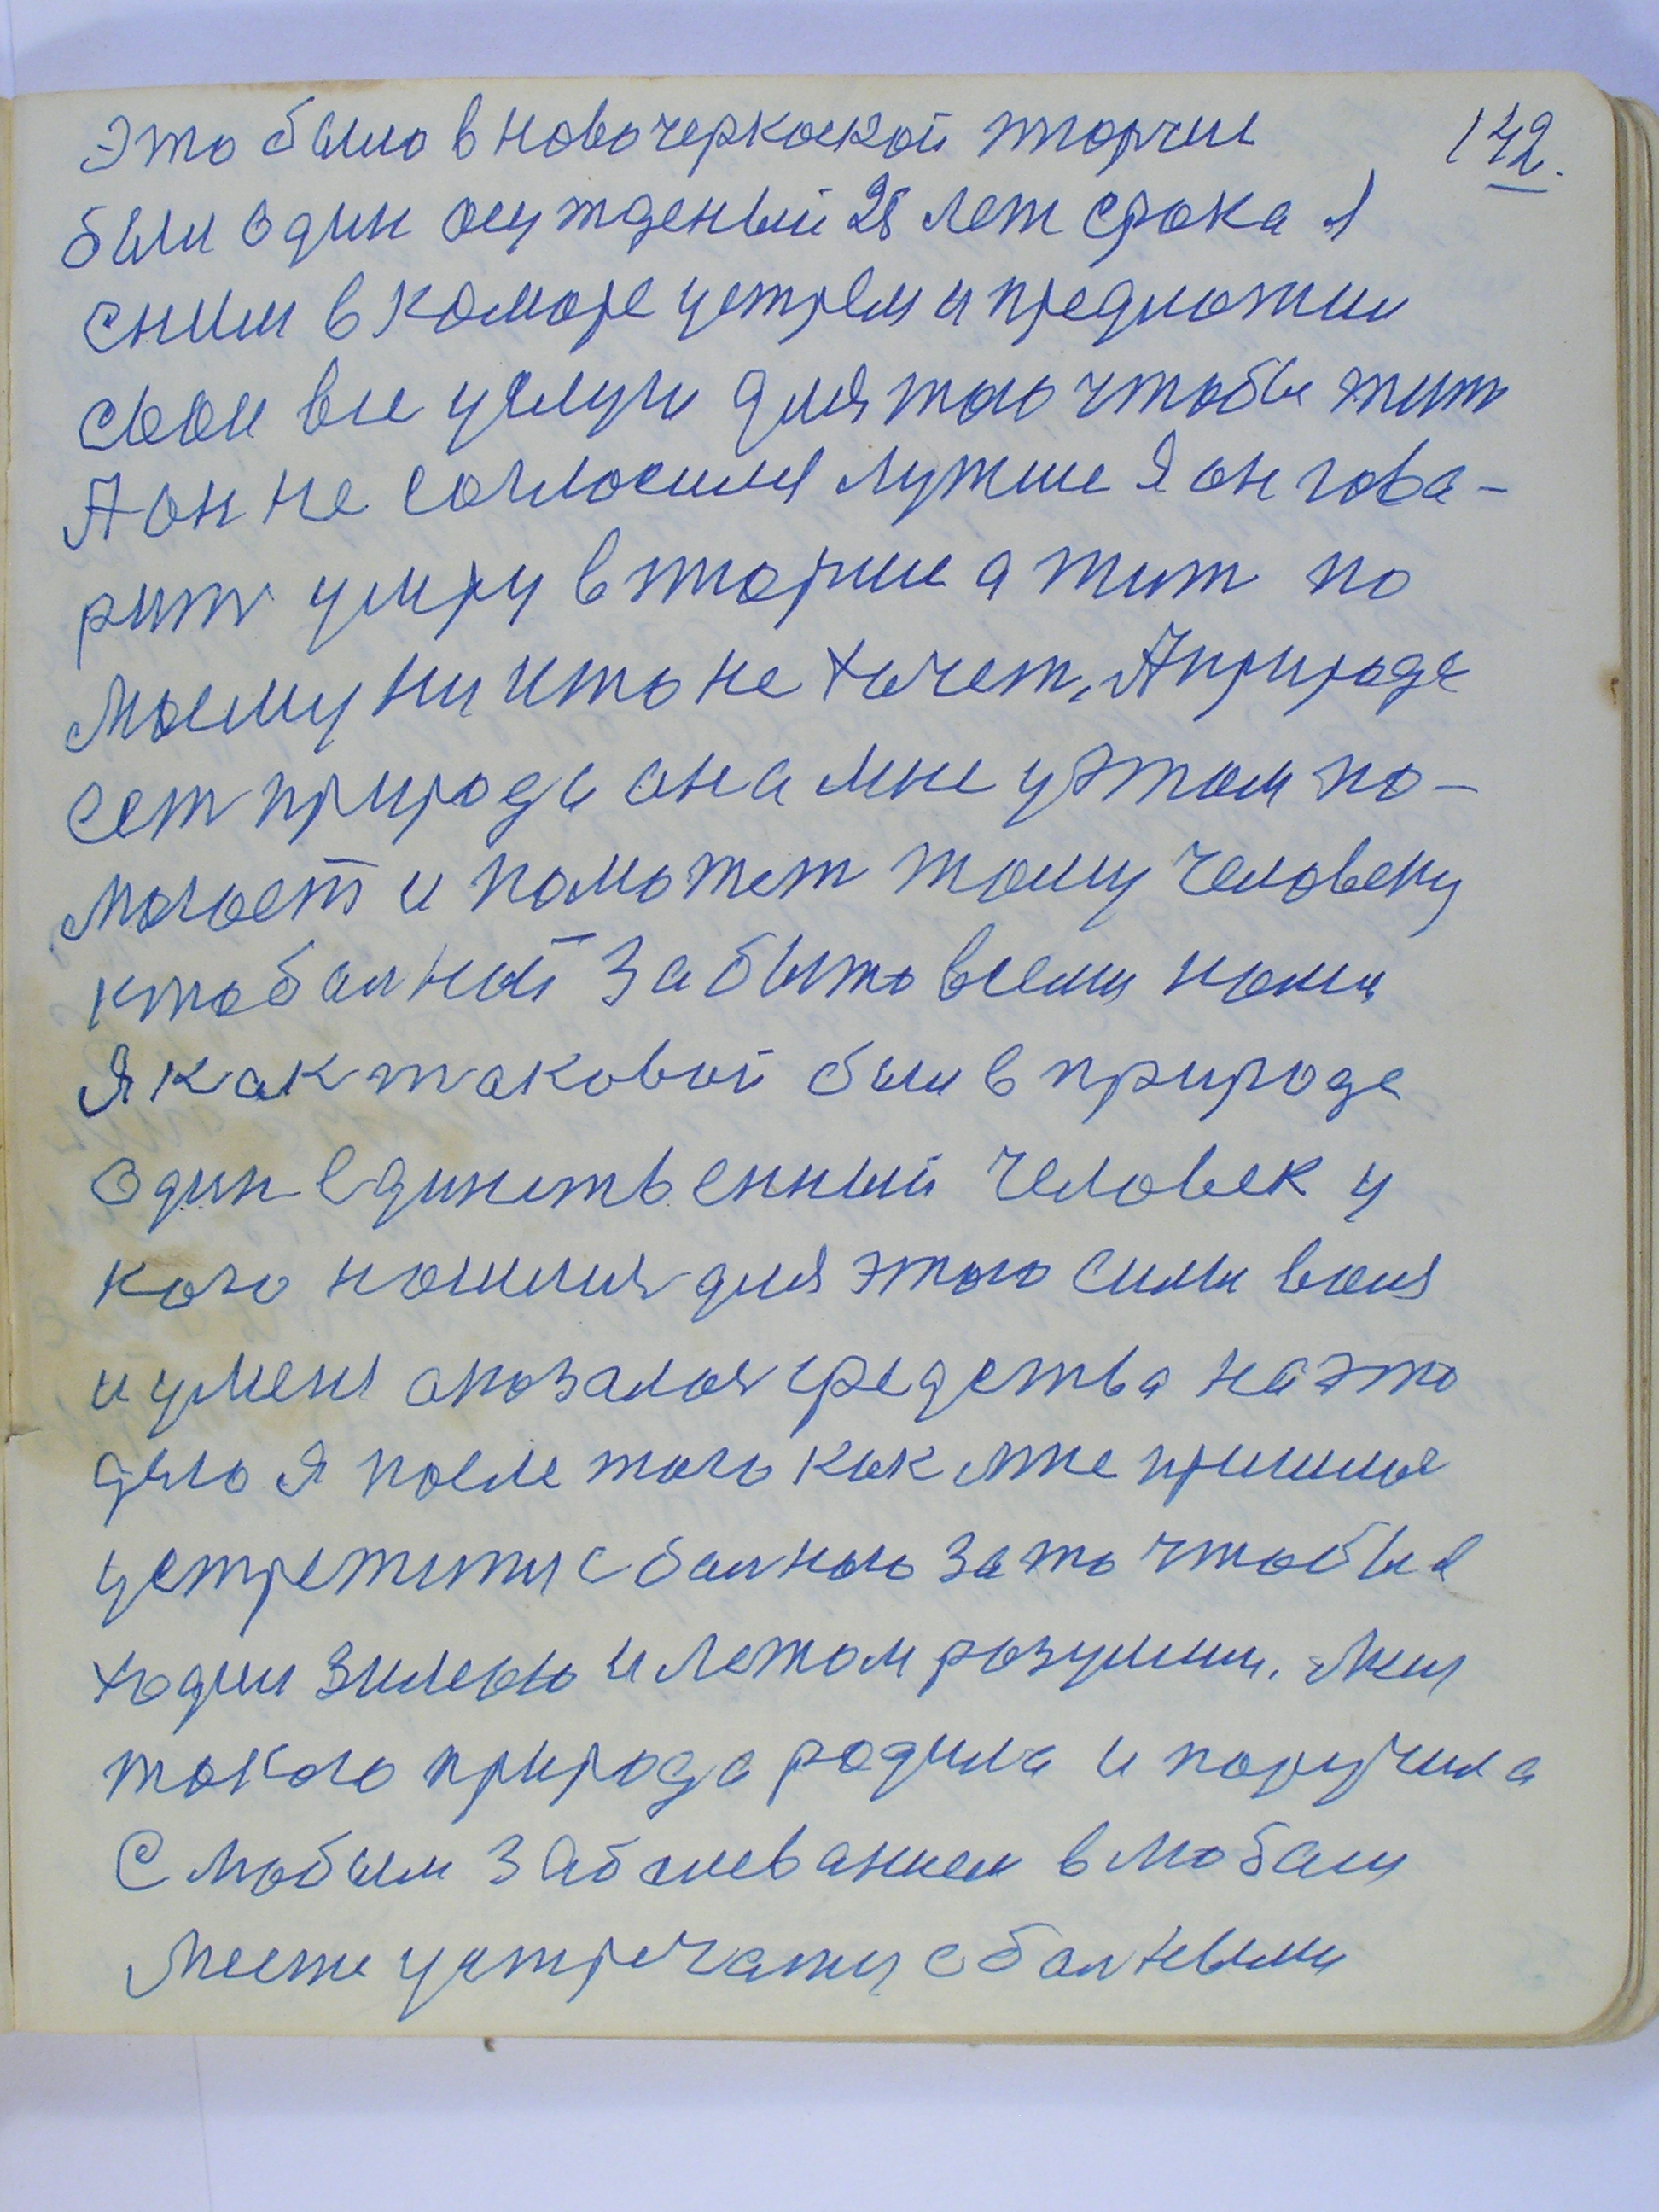 142.
Это было в Новочеркаской тюрьме
были один осужденый 25 лет срока я
сним в коморе устрел и предложил
свои все услуги для того чтобы жить
А он не согласился лутше я он гова-
рит умру в тюрьме а жит по
моему ни что не хочет. А природа
ест природа она мне у этом по-
могает и поможет тому человеку
кто балной забыто всеми нами
Я как таковой был в природе
один единственный человек у
кого нашлися для этого силы воля
и уменя оказалось средства на это
дело я после того как мне пришлося
устретится с балного за то чтобы я
ходил зимою и летом розумши. Мия
такого природа родила и поручила
С любым заболеванием в любом
месте устречатся с балными